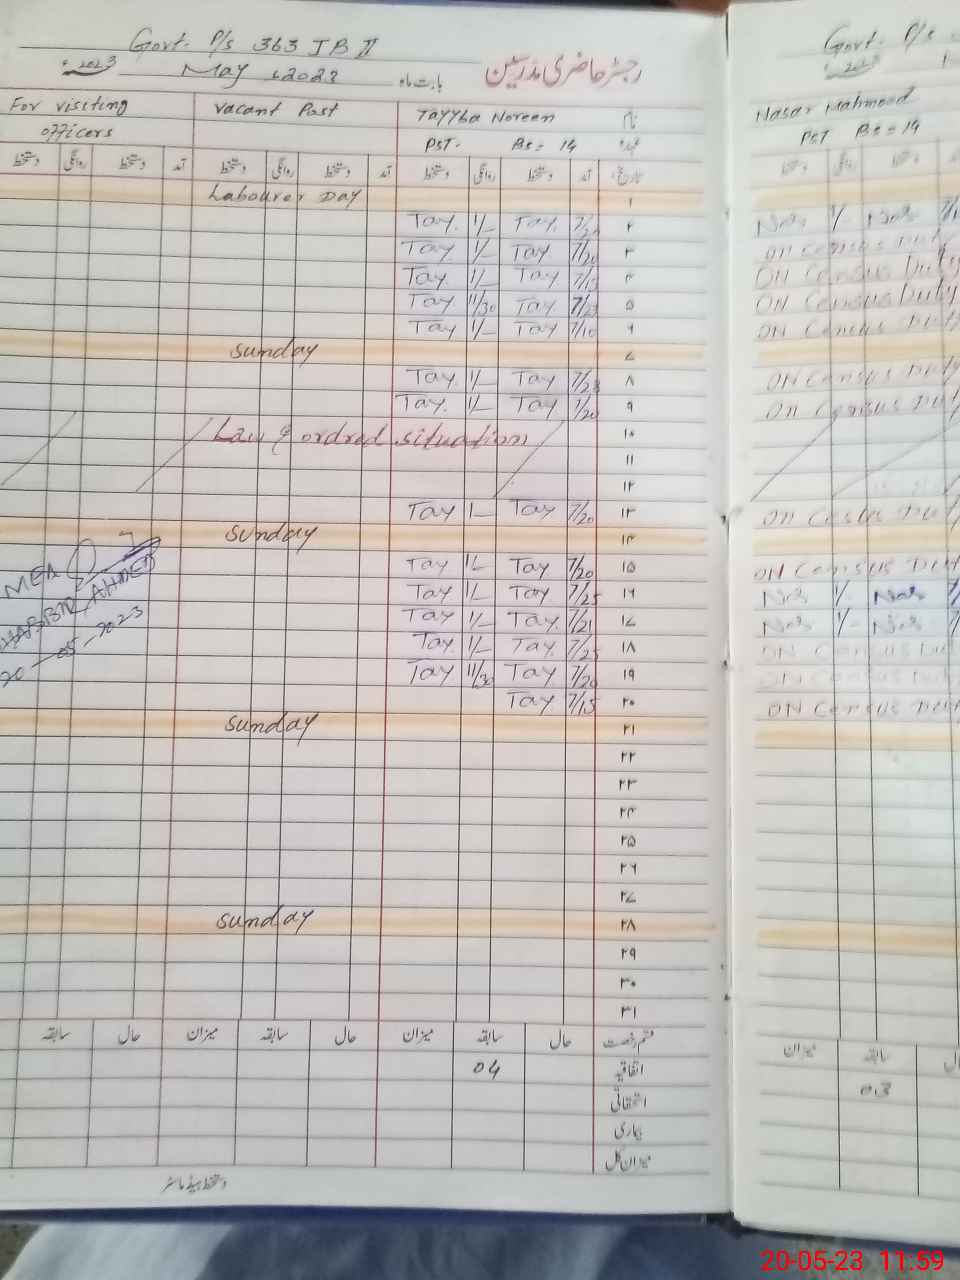 Govt. P/s 363 JB II
2023 May 2023 بابت ماہ رجسٹر حاضری مدرسین
For visiting officers Vacant Post Tayyba Noreen نام
PST. Bs = 14 عہدہ
دستخط روانگی دستخط آمد دستخط روانگی دستخط آمد دستخط روانگی دستخط آمد تاریخ
Labourer Day ۱
Tay. 1/- Tay. ۲
Tay. 1/- Tay 7/20 ۳
Tay. 1/- Tay 7/15 ۴
Tay 11/30 Tay ۵
Tay 1/- Tay 7/10 ۶
Sunday ۷
Tay. 1/- Tay ۸
Tay. 1/- Tay 7/20 ۹
Law & ordred situation ۱۰
۱۱
۱۲
Tay 1/- Tay 7/20 ۱۳
Sunday ۱۴
Tay 1/- Tay. 7/20 ۱۵
Tay 1/- Tay 7/25 ۱۶
Tay 1/- Tay. 7/21 ۱۷
Tay. 1/- Tay. 7/25 ۱۸
Tay 11/30 Tay 7/20 ۱۹
Tay 7/15 ۲۰
Sunday ۲۱
۲۲
۲۳
۲۴
۲۵
۲۶
۲۷
Sunday ۲۸
۲۹
۳۰
۳۱
MEA
AHMED
20-05-2023
سابقہ حال میزان سابقہ حال میزان سابقہ حال قسم رخصت
04 اتفاقیہ
استحقاقی
بیماری
میزان کل
دستخط ہیڈ ماسٹر
Govt. P/s
2023
Nasar Mahmood
PST Bs = 14
دستخط روانگی دستخط
Nas 1/- Nas
ON Census Duty
ON Census Duty
ON Census Duty
ON Census Duty
ON Census Duty
ON Census Dut
ON Census Dut
ON Census Duty
Nas 1/- Nas
Nas 1/- Nas
ON Census Dut
ON Census Duty
ON Census Dut
میزان سابقہ حال
03
20-05-23 11:59